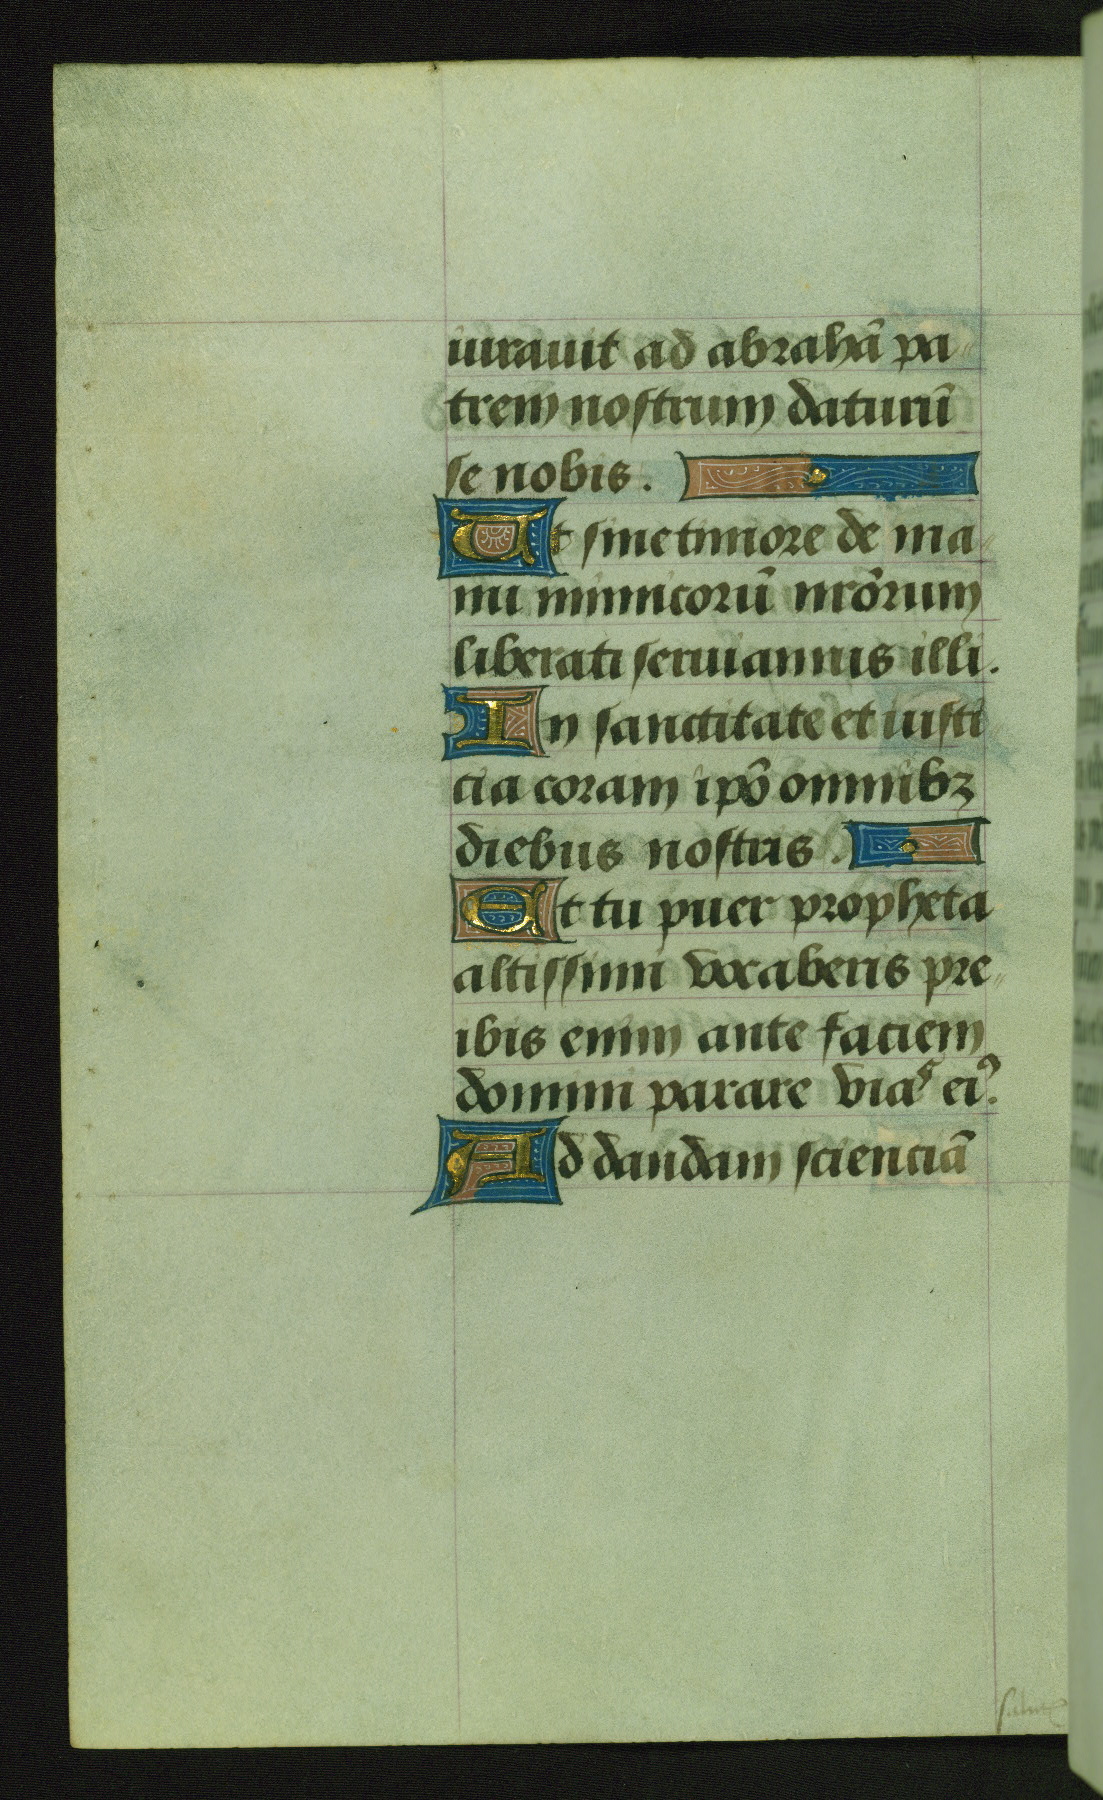 iurauit ad abrahā pa
trem nostrum daturū
se nobis.
Ut sine timore de ma
nu inimicorū nrōrum
liberati seruiamus illi.
In sanctitate et iusti
cia coram ipō omnibꝫ
diebus nostris.
Et tu puer propheta
altissimi vocaberis pre
ibis enim ante faciem
domini parare vias eiꝰ.
Ad dandam scienciā